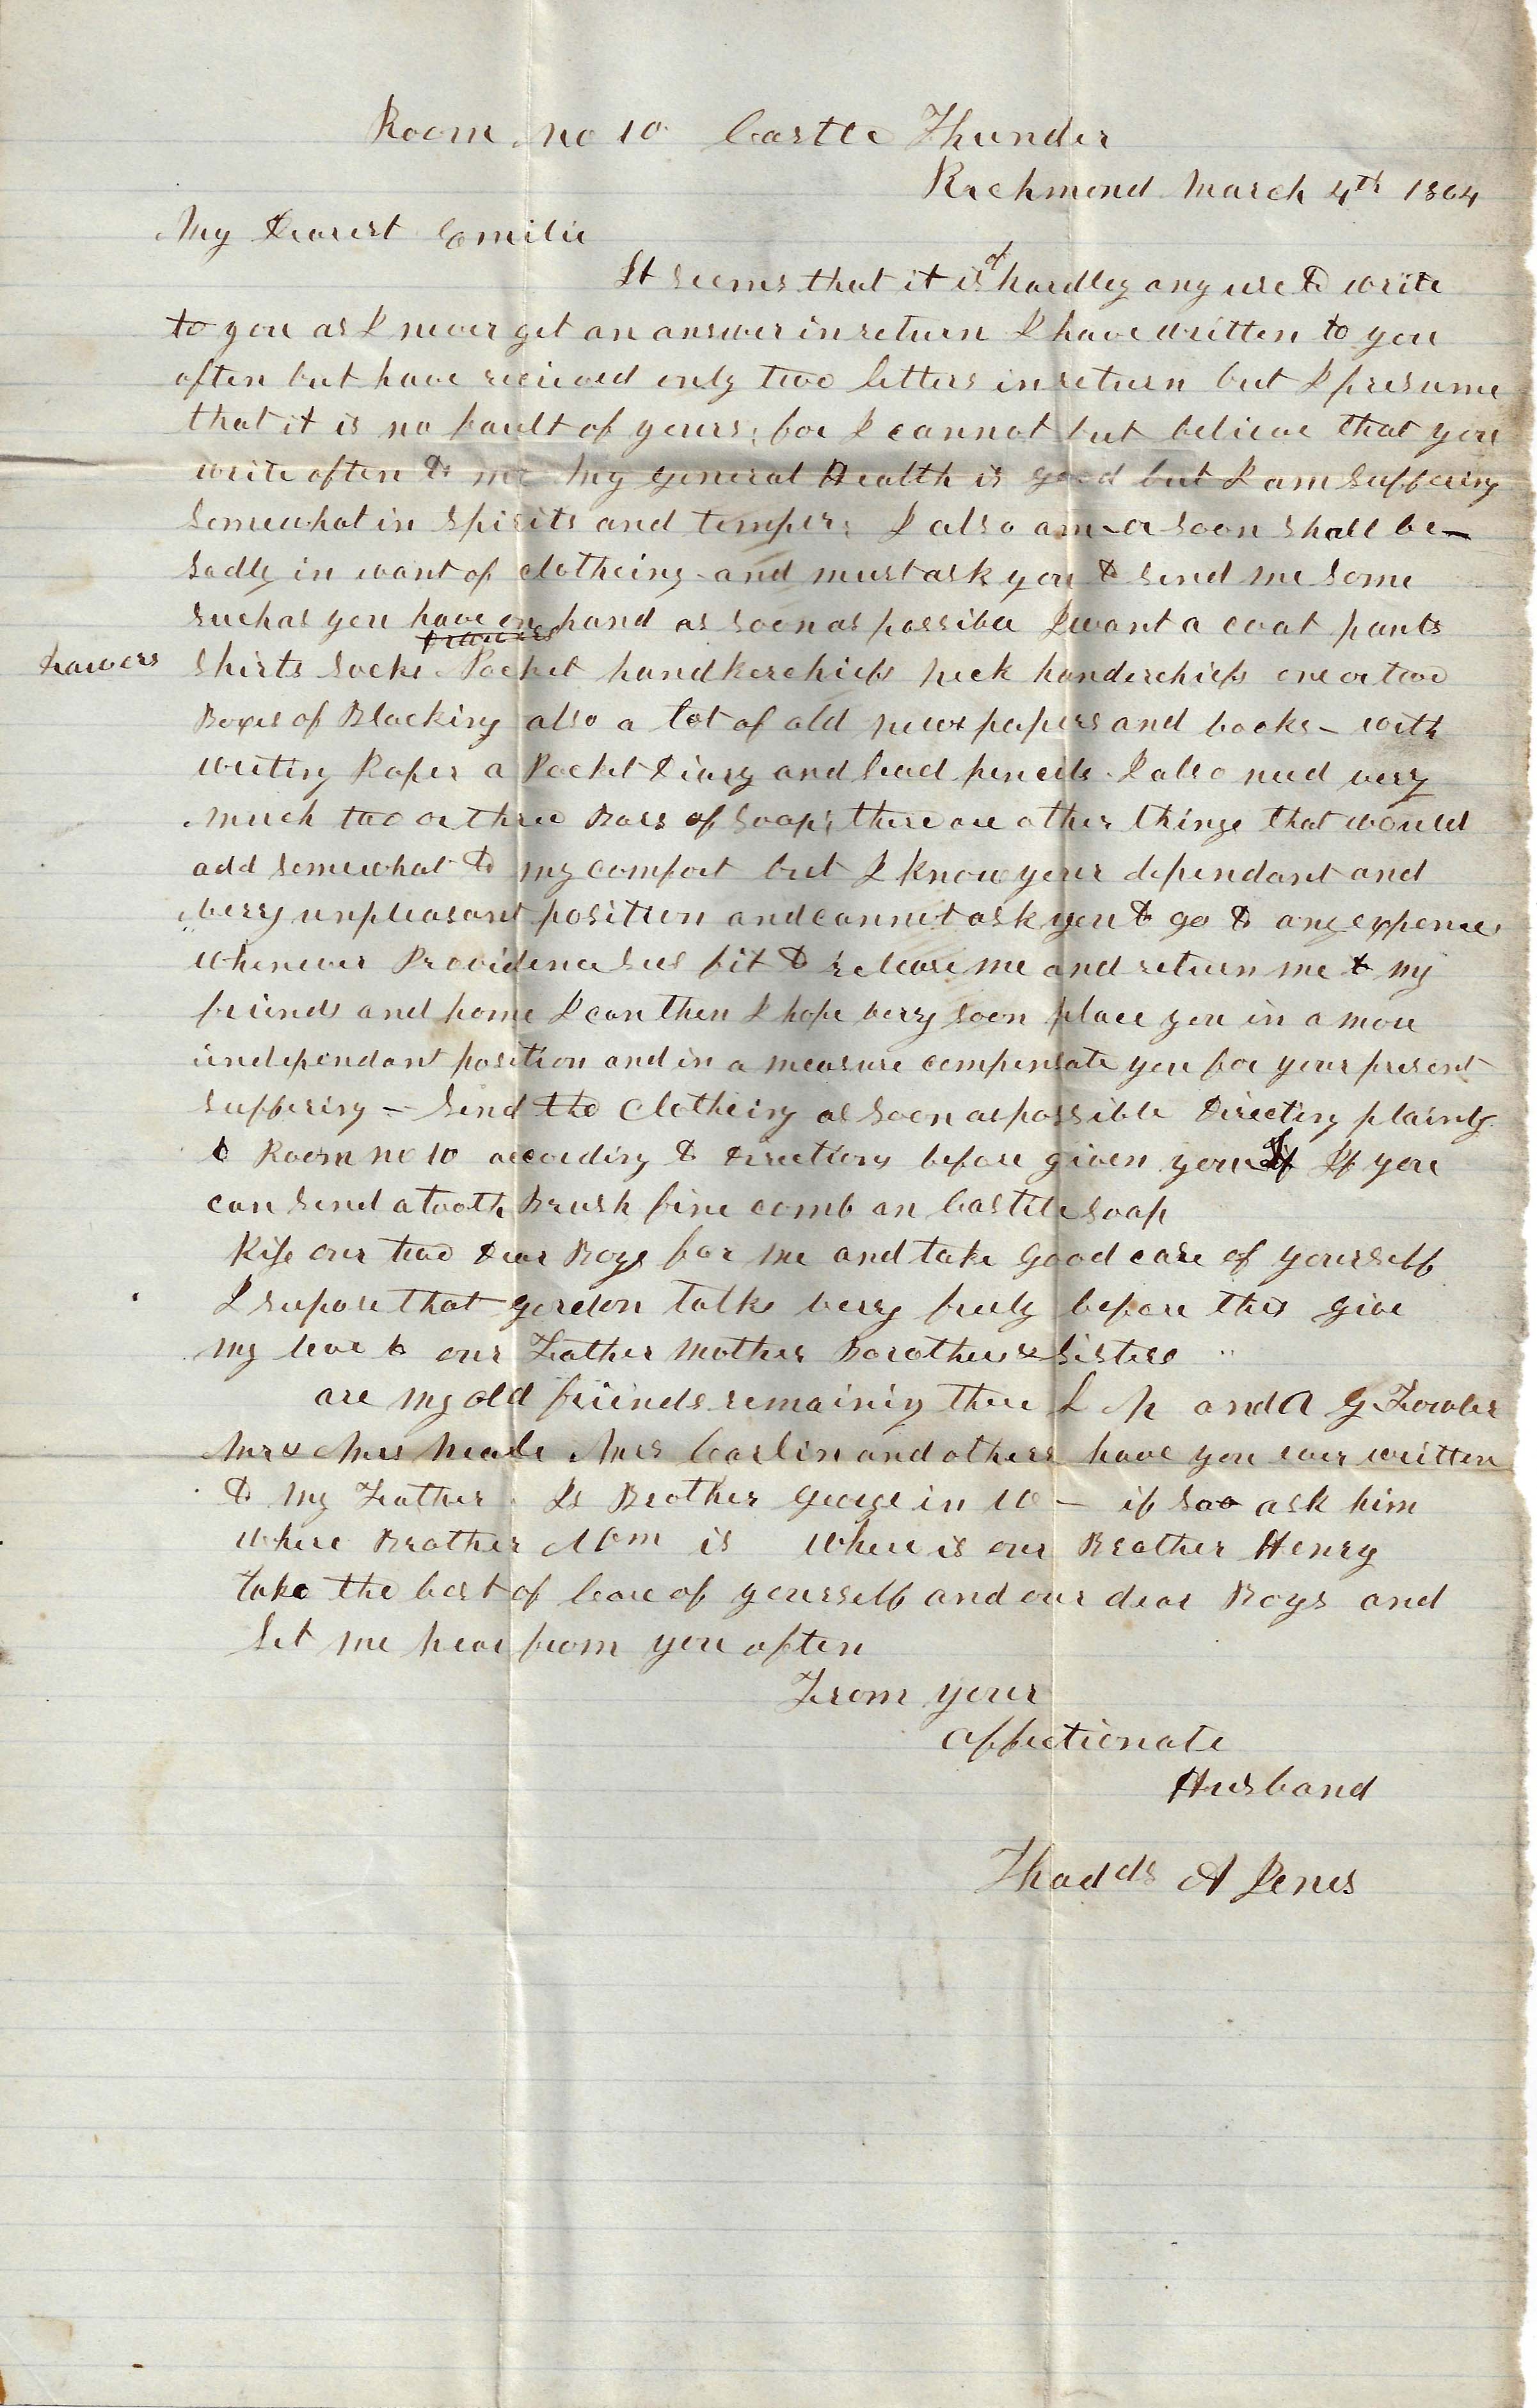 Room no 10 Castle Thunder
Richmond March 4th 1864
My Dearest Emilie
It seems that it is of hardly any use to write
to you as I never get an answer in return I have written to you
often but have recieved only two letters in return but I presume
that it is no fault of yours; for I cannot but believe that you
write often to me My general Health is good but I am suffering
somewhat in spirits and temper; I also am or soon shall be –
sadly in want of clotheing and must ask you to send me some
such as you have on hand as soon as possible I want a coat pants
drawers
Drawers shirts socks Pocket handkerchiefs neck handerchiefs one or two
Boxes of Blacking also a lot of old news papers and books – with
writing Paper a Pocket Diary and lead pencils. I also need very
much two or three Bars of soap; there are other things that would
add somewhat to my comfort but I know your dependant and
very unpleasant position and cannot ask you to go to any expense
whenever Providence sees fit to release me and return me to my
friends and home I can then I hope very soon place you in a more
independant position and in a measure compensate you for your present
suffering – Send the Clotheing as soon as possible Directing plainly
to Room no 10 according to directions before given you If If you
can send a tooth Brush fine comb an Castile soap
Kiss our two dear Boys for me and take good care of yourself
I supose that gordon talks very freely before this give
my love to our Father Mother Borothers & Sisters
are my old friends remaining there L M and A G Fowler
Mr & Mrs Neale Mrs Carlin and others have you ever written
to My Father. Is Brother George in W – if soo ask him
where Brother Wm is Where is our Brother Henry
take the best of Care of yourself and our dear Boys and
let me hear from you often
From your
affectionate
Husband
Thadds A Jones